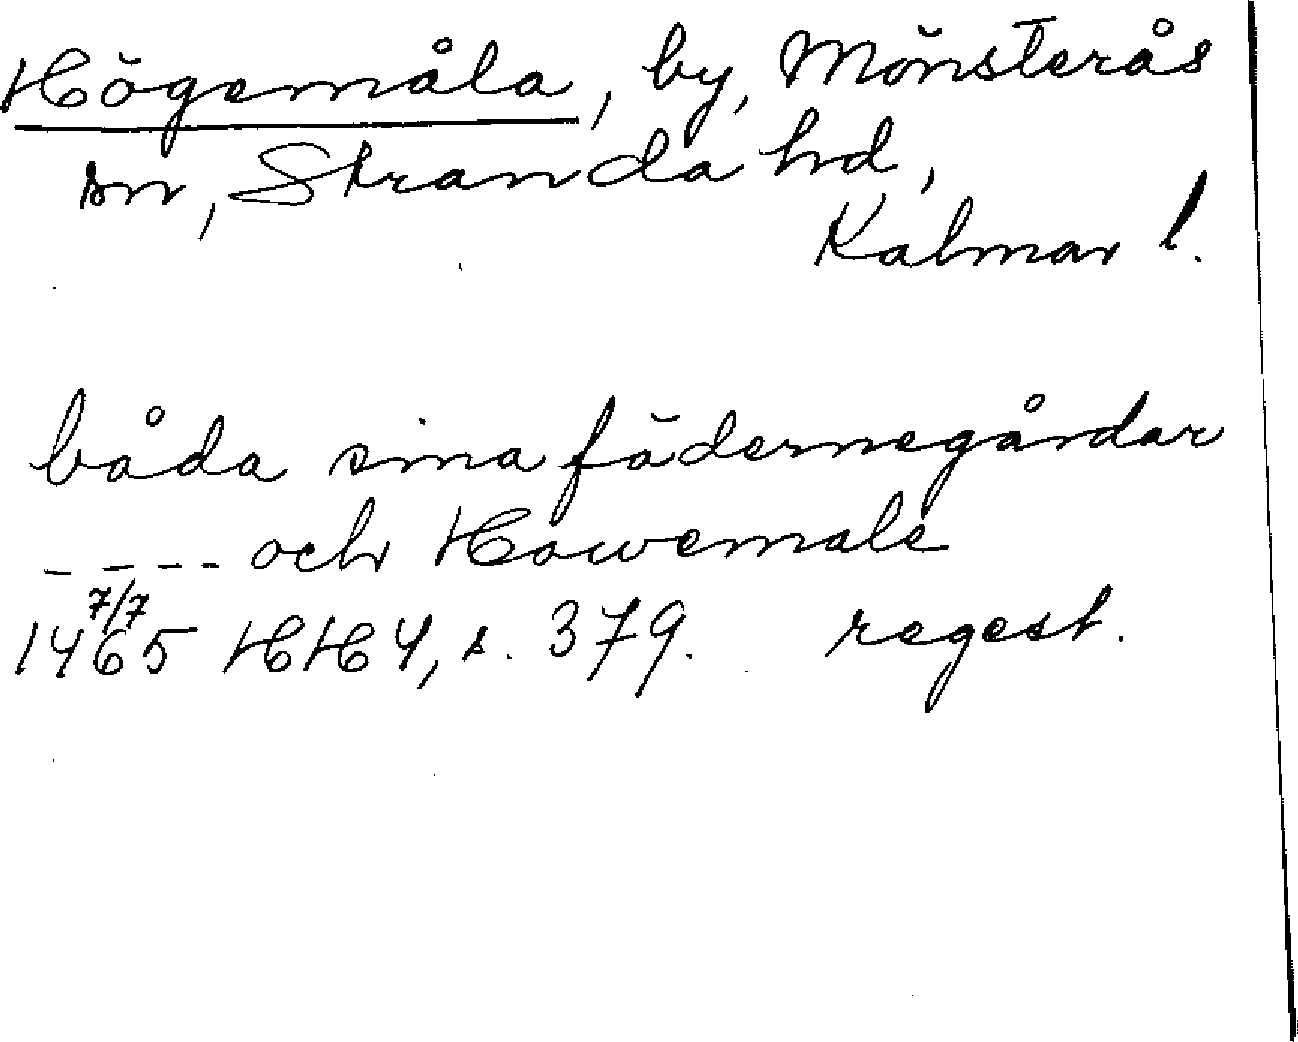 Högemåla, by, Mönsterås
sn, Stranda hd,
Kalmar l.
båda sina fädernegårdar
----- och Howemale
7/7
1465 HH 4, s. 379. regest.